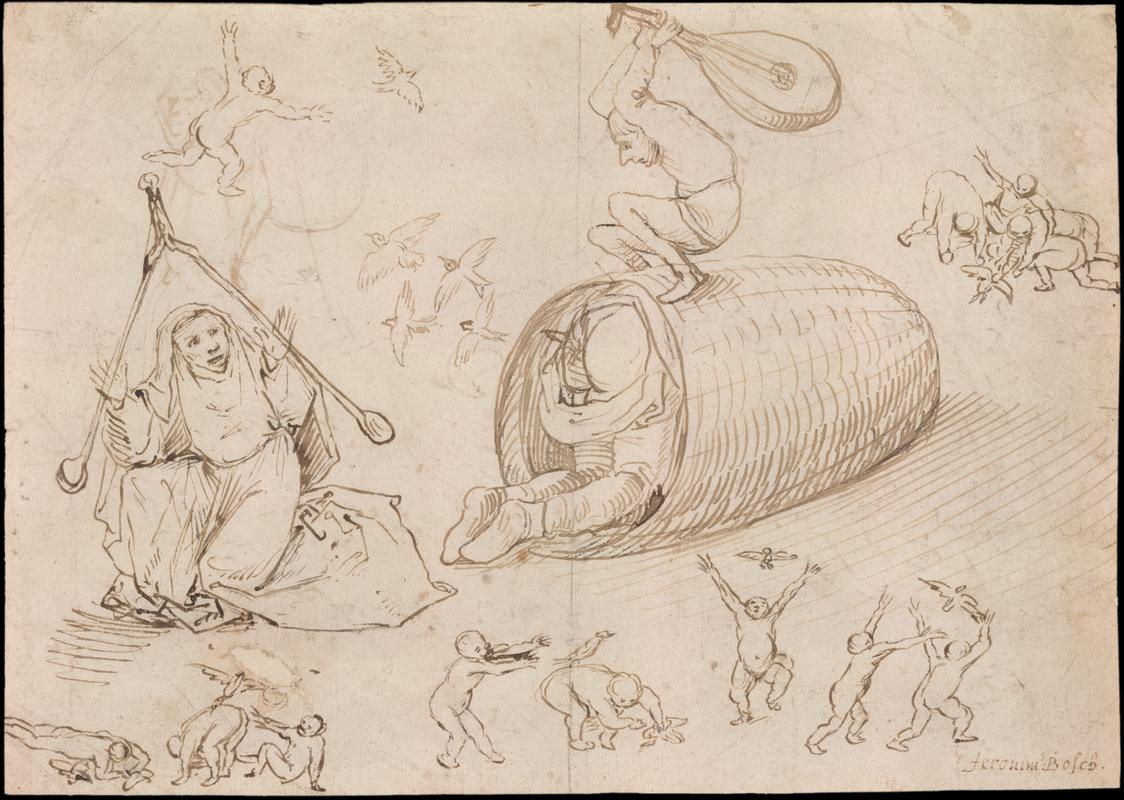 Jeronim⁹ Bosch.